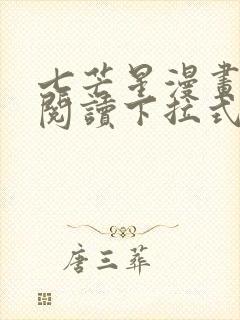 七芒星漫畫
閱讀下拉式
唐三葬